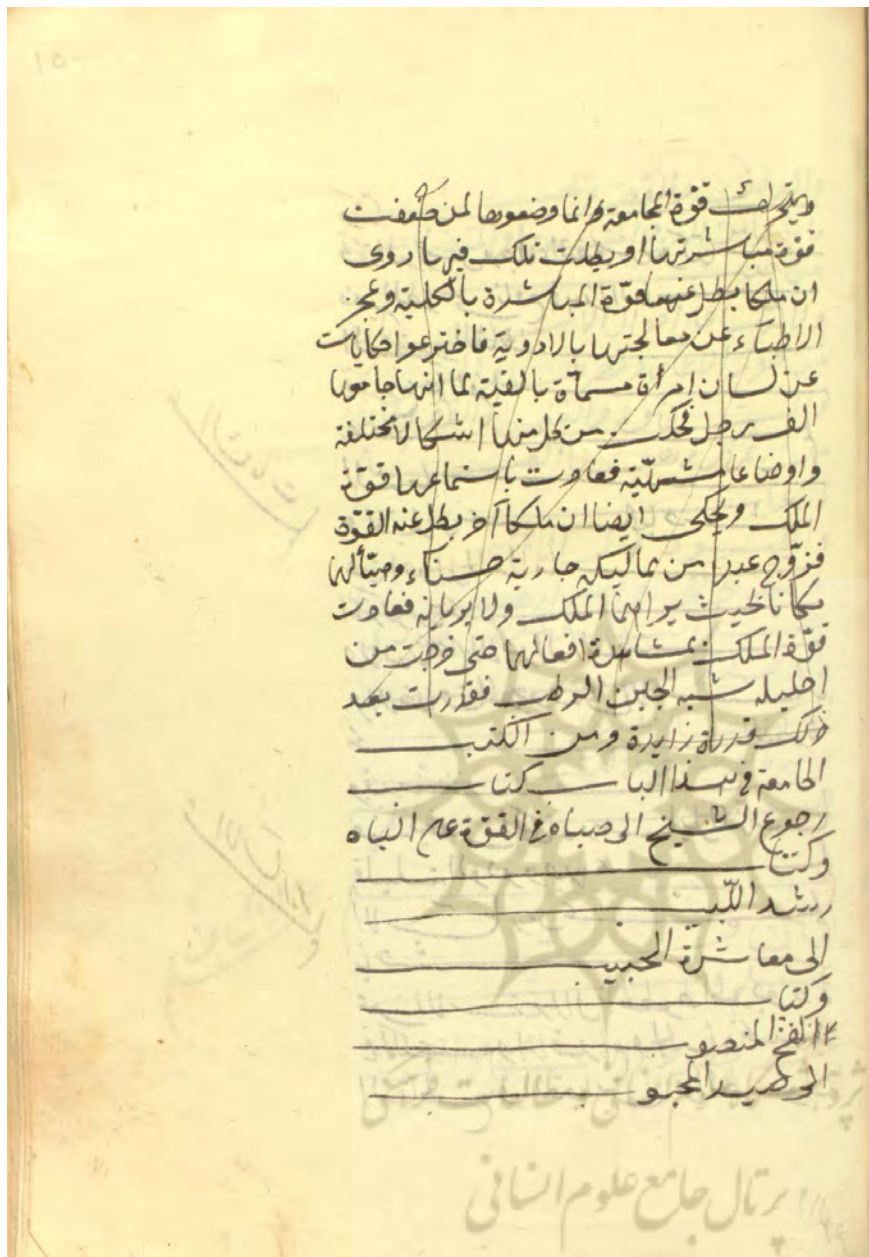 ويتحرك قوة المجامعة وانما وضعوها لمن ضعفت
قوة مباشرتها او بطلت تلك فيها روى
ان ملكا بطل عنها قوة المباشرة بالكلية وعجز
الاطباء عن معالجتها بالادوية فاخترعوا حكايات
عن لسان امرأة مسماة بالفية لما انها جامعها
الف رجل فحكت عن كل منها اشكالا مختلفة
واوضاعا فعادت باستماعها قوة
الملك ويحكى ايضا ان ملكا آخر بطل عنه القوة
فزوج عبدا من مماليكه جارية حسناء وهيأ لهما
مكانا بحيث يراهما الملك ولا يريانه فعادت
قوة الملك بمشاهدة افعالهما حتى خرجت من
احليله شبه الجبن الرطب فقدرت بعد
ذلك قدرة زايدة ومن الكتب
الجامعة في هذا الباب كتاب
رجوع الشيخ الى صباه في القوة على الباه
وكتاب
رشد اللبيب
الى معاشرة الحبيب
وكتاب
الفتح المنصوب
الى صيد المحبوب
پرتال جامع علوم انسانی